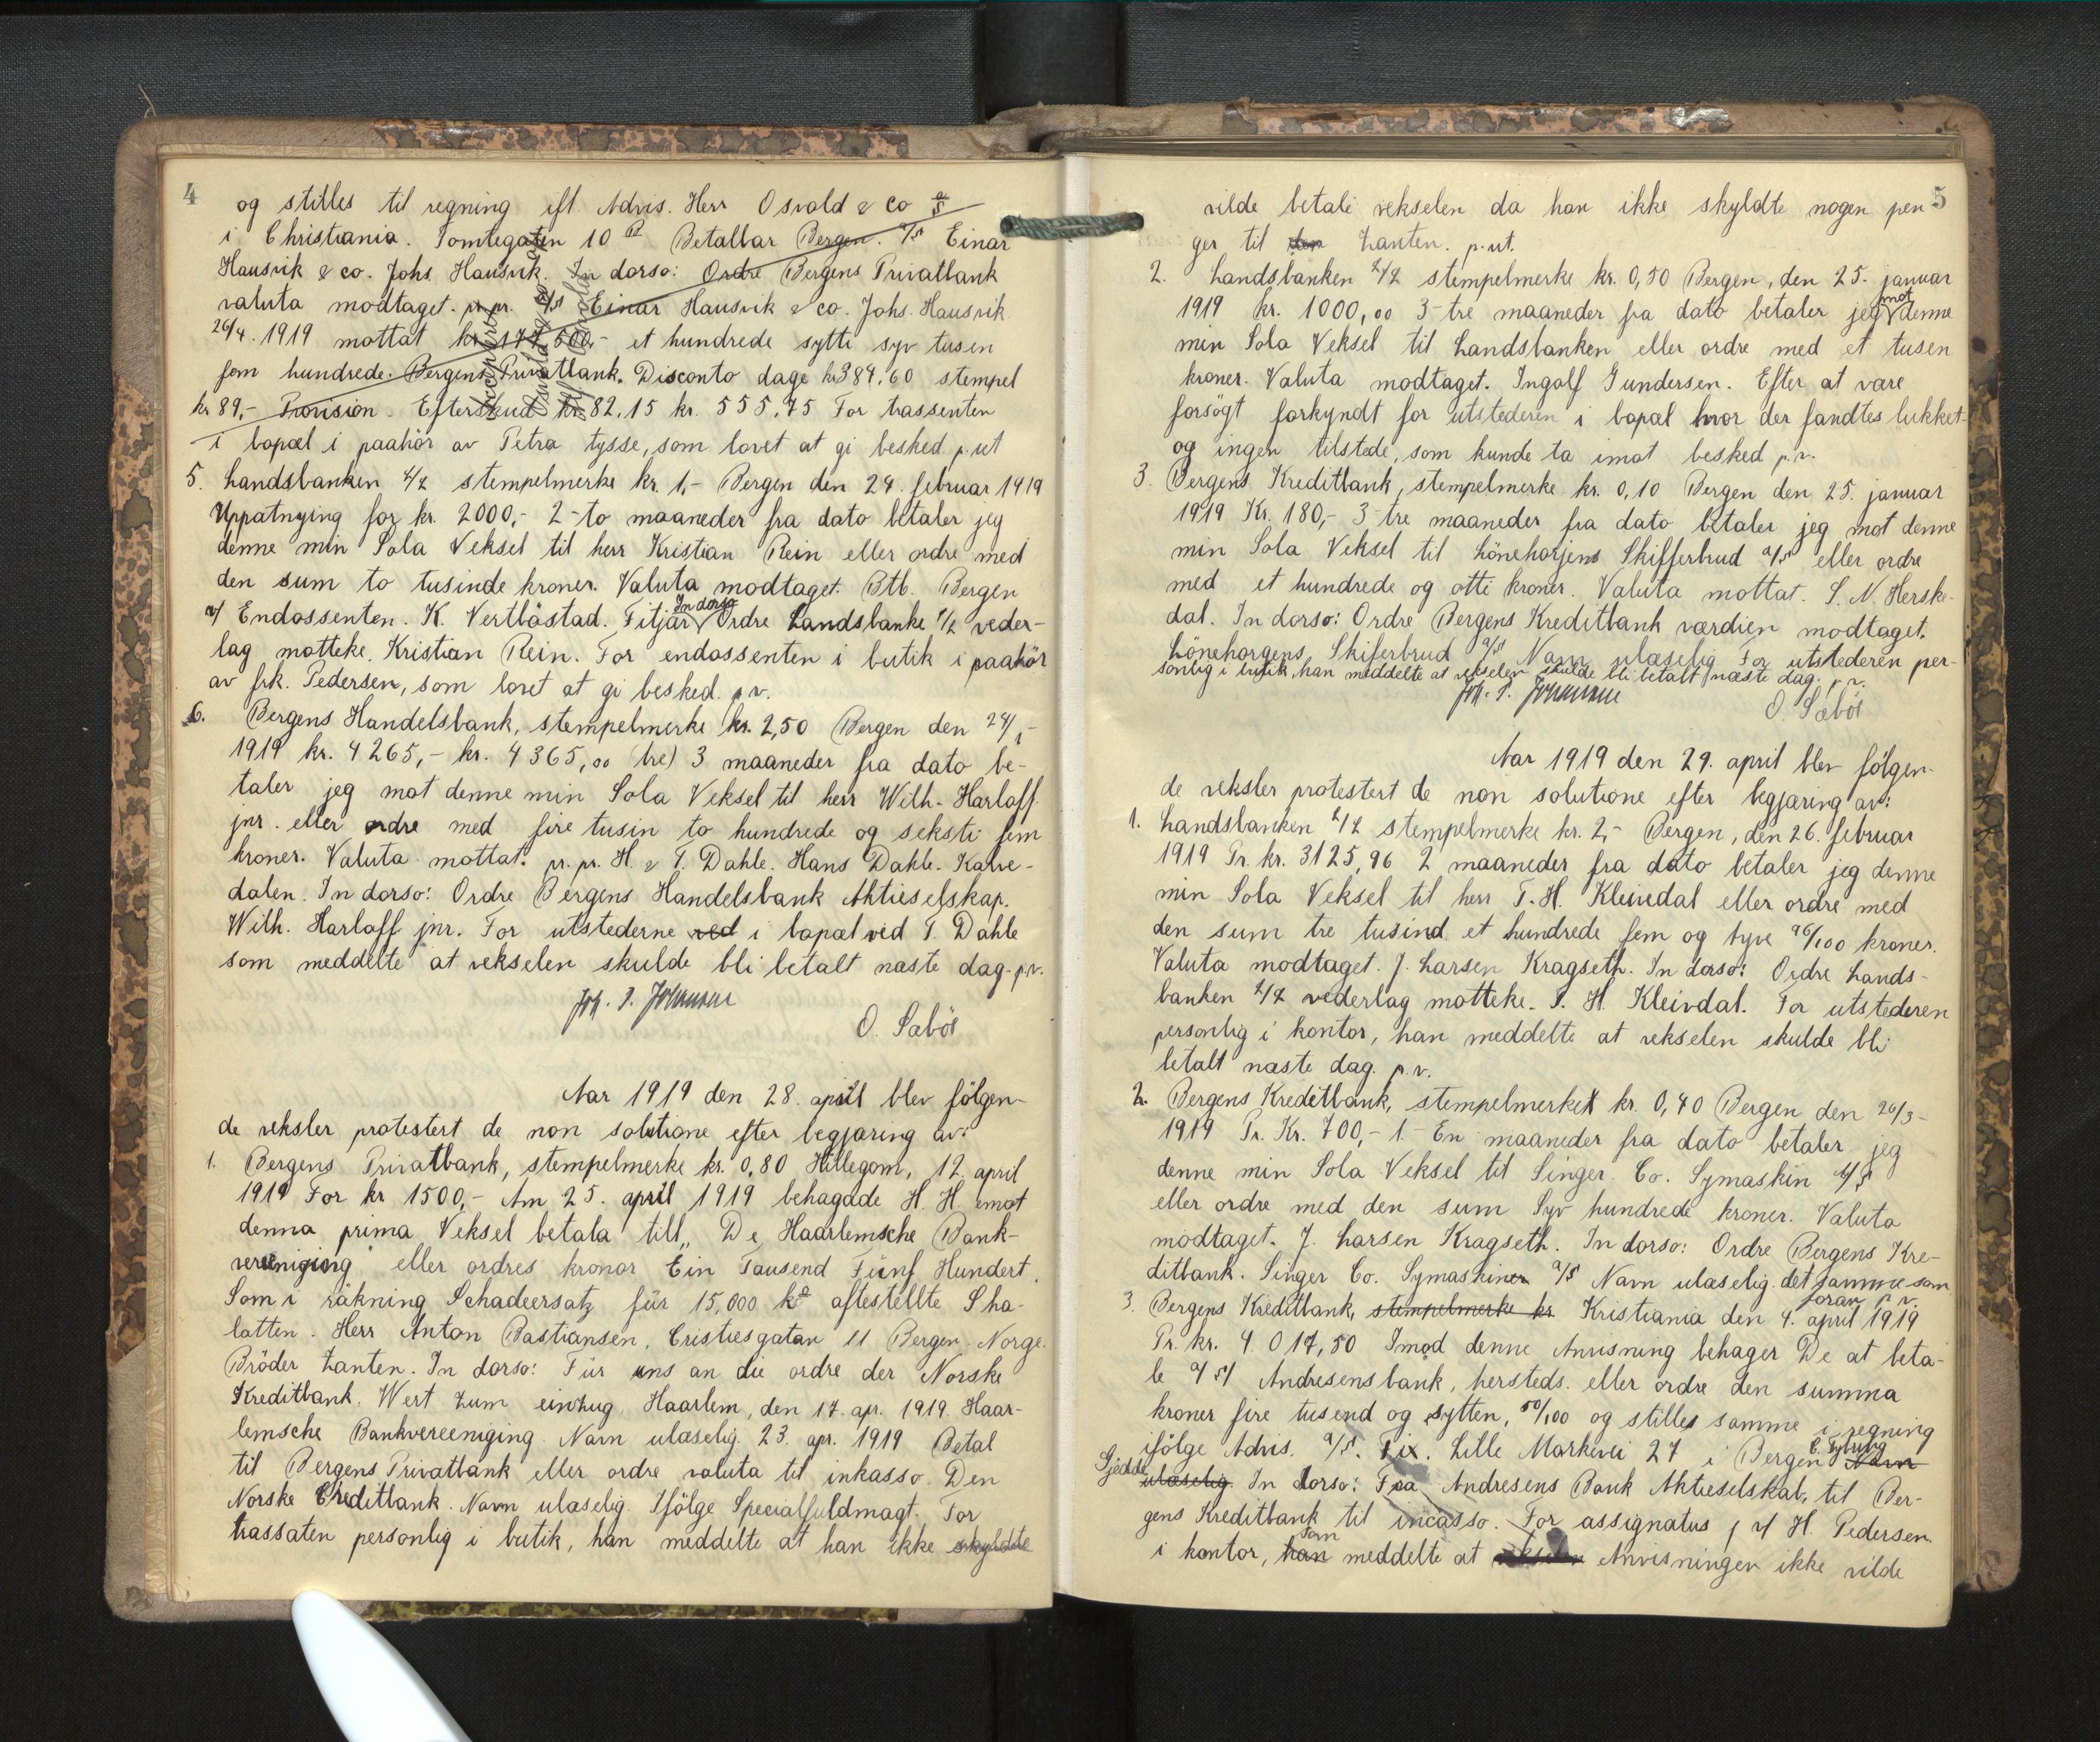 4
og stilles til regning ifl. Advis. Herr Osvald & co A/S
i Christiania. Tomtegaten 10 B Betalbar Bergen. A/S Einar
Hausvik & co. Johs. Hausvik. In dorso: Ordre Bergens Privatbank
valuta modtaget. p. pr. A/S Einar Hausvik & co. Johs. Hausvik
26/4. 1919 mottat kr 177 500,- et hundrede sytti syv tusen
fem hundrede. Bergens Privatbank. Disconto dage kr 384.60 stempel
kr 89,- Provision. Efterskud kr 82.15 kr. 555.75 For trassenten
i bopæl i paahör av Petra tysse, som lovet at gi besked p.ut
5. Landsbanken A/L stempelmerke kr. 1,- Bergen den 24. februar 1919
Uppatnying for kr. 2000,- 2-to maaneder fra dato betaler jeg
denne min Sola Veksel til herr Kristian Rein eller ordre med
den sum to tusinde kroner. Valuta modtaget. Btb. Bergen
v/ Endossenten. K. Vertbåstad. Fitjar In dorso Ordre Landsbanke A/L veder-
lag motteke. Kristian Rein. For endossenten i butik i paahör
av frk. Pedersen, som lovet at gi besked. p.v.
6. Bergens Handelsbank, stempelmerke kr. 2,50 Bergen den 24/1-
1919 kr. 4265,- kr. 4365,00 tre) 3 maaneder fra dato be-
taler jeg mot denne min Sola Veksel til herr Wilh. Harloff
jnr. eller ordre med fire tusin to hundrede og seksti fem
kroner. Valuta mottat. pr. pr. H. & T. Dahle. Hans Dahle. Kalve-
dalen. In dorso: Ordre Bergens Handelsbank Aktieselskap.
Wilh. Harloff jnr. For utstederne ved i bopæl ved T. Dahle
som meddelte at vekselen skulde bli betalt næste dag. p.v.
O. Sæbö
Aar 1919 den 28. april blev fölgen-
de veksler protestert de non solutione efter begjæring av:
1. Bergens Privatbank, stempelmerke kr. 0,80 Hillegom, 12. april
1919 For kr 1500,- Am 25. april 1919 behagade H. H. emot
denna prima Veksel betala till „De Haarlemsche Bank-
vereeniging" eller ordres kronor Ein Tausend Fünf Hundert.
Som i räkning Schadeersatz für 15,000 ko aftestellte Scha-
latten. Herr Anton Bastiansen, Cristiesgatan 11 Bergen. Norge.
Bröder Zanten. In dorso: Für uns an die ordre der Norske
Kreditbank. Wert zum einzug. Haarlem, den 17. apr. 1919 Haar-
lemsche Bankvereeniging. Navn ulæselig 23. apr. 1919 Betal
til Bergens Privatbank eller ordre valuta til inkasso. Den
Norske Creditbank. Navn ulæselig. Ifölge Specialfuldmagt. For
trassaten personlig i butik, han meddelte at han ikke skyldte
5
vilde betale vekselen da han ikke skyldte nogen pen
ger til den Zanten. p.ut.
2. Landsbanken A/L stempelmerke kr. 0,50 Bergen, den 25. januar
1919 kr. 1000,00 3-tre maaneder fra dato betaler jeg mot denne
min Sola Veksel til Landsbanken eller ordre med et tusen
kroner. Valuta modtaget. Ingolf Gundersen. Efter at være
forsögt forkyndt for utstederen i bopæl hvor der fandtes lukket
og ingen tilstede, som kunde ta imot besked p.v.
3. Bergens Kreditbank, stempelmerke kr. 0,10 Bergen den 25. januar
1919 Kr. 180,- 3-tre maaneder fra dato betaler jeg mot denne
min Sola Veksel til Lönehorjens Skifferbrud A/S eller ordre
med et hundrede og otti kroner. Valuta mottat. S. N. Herske-
dal. In dorso: Ordre Bergens Kreditbank værdien modtaget.
Lönehorgens Skiferbrud A/S Navn ulæselig For utstederen per-
sonlig i butik, han meddelte at vekselen skulde bli betalt næste dag. p.v.
O. Sæbö
Aar 1919 den 29. april blev fölgen-
de veksler protestert de non solutione efter begjæring av:
1. Landsbanken A/L stempelmerke kr. 2,- Bergen, den 26. februar
1919 Pr. kr. 3125,96 2 maaneder fra dato betaler jeg denne
min Sola Veksel til herr T. H. Kleivdal eller ordre med
den sum tre tusind et hundrede fem og tyve 96/100 kroner.
Valuta modtaget. J. Larsen Kragseth. In dorso: Ordre Lands-
banken A/L vederlag motteke. T. H. Kleivdal. For utstederen
personlig i kontor, han meddelte at vekselen skulde bli
betalt næste dag. p.v.
2. Bergens Kreditbank, stempelmerket kr. 0,40 Bergen den 26/3-
1919 Pr. Kr. 700,- 1- En maaneder fra dato betaler jeg
denne min Sola Veksel til Singer Co. Symaskin A/S
eller ordre med den sum Syv hundrede kroner. Valuta
modtaget. J. Larsen Kragseth. In dorso: Ordre Bergens Kre-
ditbank. Singer Co. Symaskiner A/S Navn ulæselig. det samme som
foran p.v.
3. Bergens Kreditbank, stempelmerke kr. Kristiania den 4. april 1919
Pr. kr. 4.017,50 Imod denne Anvisning behager De at beta-
le A/S Andresensbank, hersteds. eller ordre den summa
kroner fire tusend og sytten, 50/100 og stilles samme i regning
ifölge Advis. A/S. Fix. Lille Markevei 27 i Bergen Navn
ulæselig. In dorso: Fra Andresens Bank Aktieselskab, til Ber-
gens Kreditbank til incasso. For assignatus v/ H. Pedersen.
i kontor, han som meddelte at vekselen Anvisningen ikke vilde